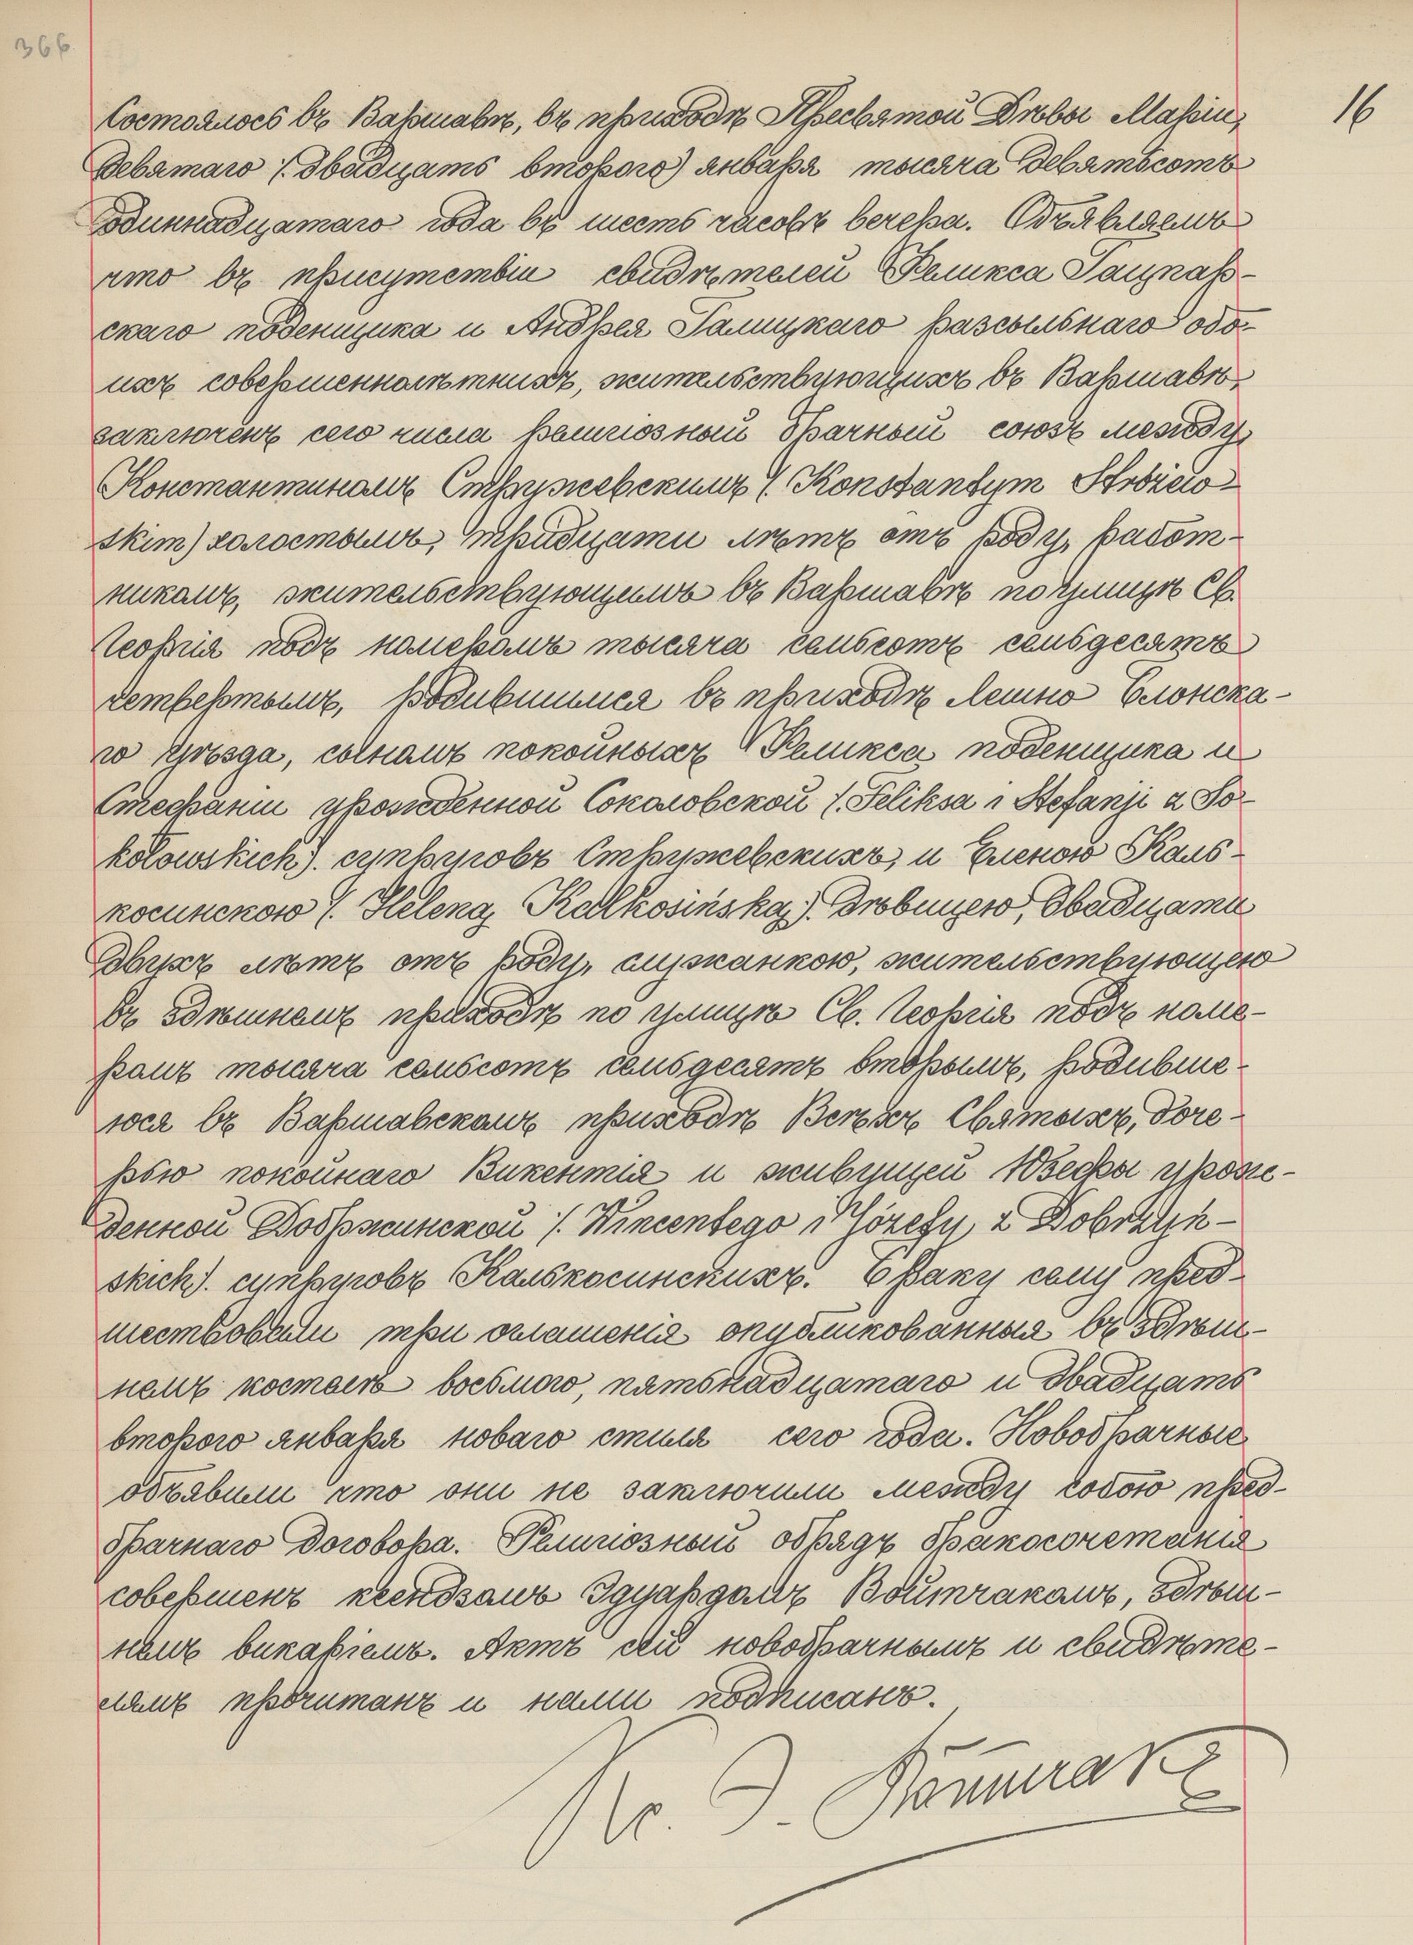 366
16
Состоялось въ Варшавѣ, въ приходѣ Пресвятой Дѣвы Маріи,
девятаго /: двадцать второго) января тысяча девятьсотъ
одиннадцатаго года въ шесть часовъ вечера. Объявляемъ
что въ присутствіи свидѣтелей Феликса
скаго поденщика и Андрея Галицкаго разсыльнаго обо-
ихъ совершеннолѣтнихъ, жительствующихъ въ Варшавѣ,
заключенъ сего числа религіозный брачный союзъ между
Константиномъ Стружевскимъ /: Konstantym Stróżew-
skim) холостымъ, тридцати лѣтъ отъ роду, работ-
никомъ, жительствующимъ въ Варшавѣ по улицѣ Св.
Георгія подъ номеромъ тысяча семьсотъ семьдесятъ
четвертымъ, родившимся въ приходѣ Лешно Блонска-
го уѣзда, сыномъ покойныхъ Феликса поденщика и
Стефаніи урожденной Соколовской /: Feliksa i Stefanji z So-
kołowskich). супруговъ Стружевскихъ, и Еленою Каль-
косинскою /: Heleną Kałkosińską). дѣвицею, двадцати
двухъ лѣтъ отъ роду, служанкою, жительствующею
въ здѣшнемъ приходѣ по улицѣ Св. Георгія подъ номе-
ромъ тысяча семьсотъ семьдесятъ вторымъ, родивше-
юся въ Варшавскомъ приходѣ Всѣхъ Святыхъ, доче-
рью покойнаго Викентія и живущей Юзефы урожде-
денной Добржинской /: Wincentego i Józefy z Dobrzyń-
skich). супруговъ Калькосинскихъ. Браку сему пред-
шествовали три оглашенія опубликованныя въ здѣш-
немъ костелѣ восьмого, пятнадцатаго и двадцать
второго января новаго стиля сего года. Новобрачные
объявили что они не заключили между собою пред-
брачнаго договора. Религіозный обрядъ бракосочетанія
совершенъ ксендзомъ Эдуардомъ Войтчакомъ, здѣш-
немъ викаріемъ. Актъ сей новобрачнымъ и свидѣте-
лямъ прочитанъ и нами подписанъ.
Кс. Э. Войтчакъ